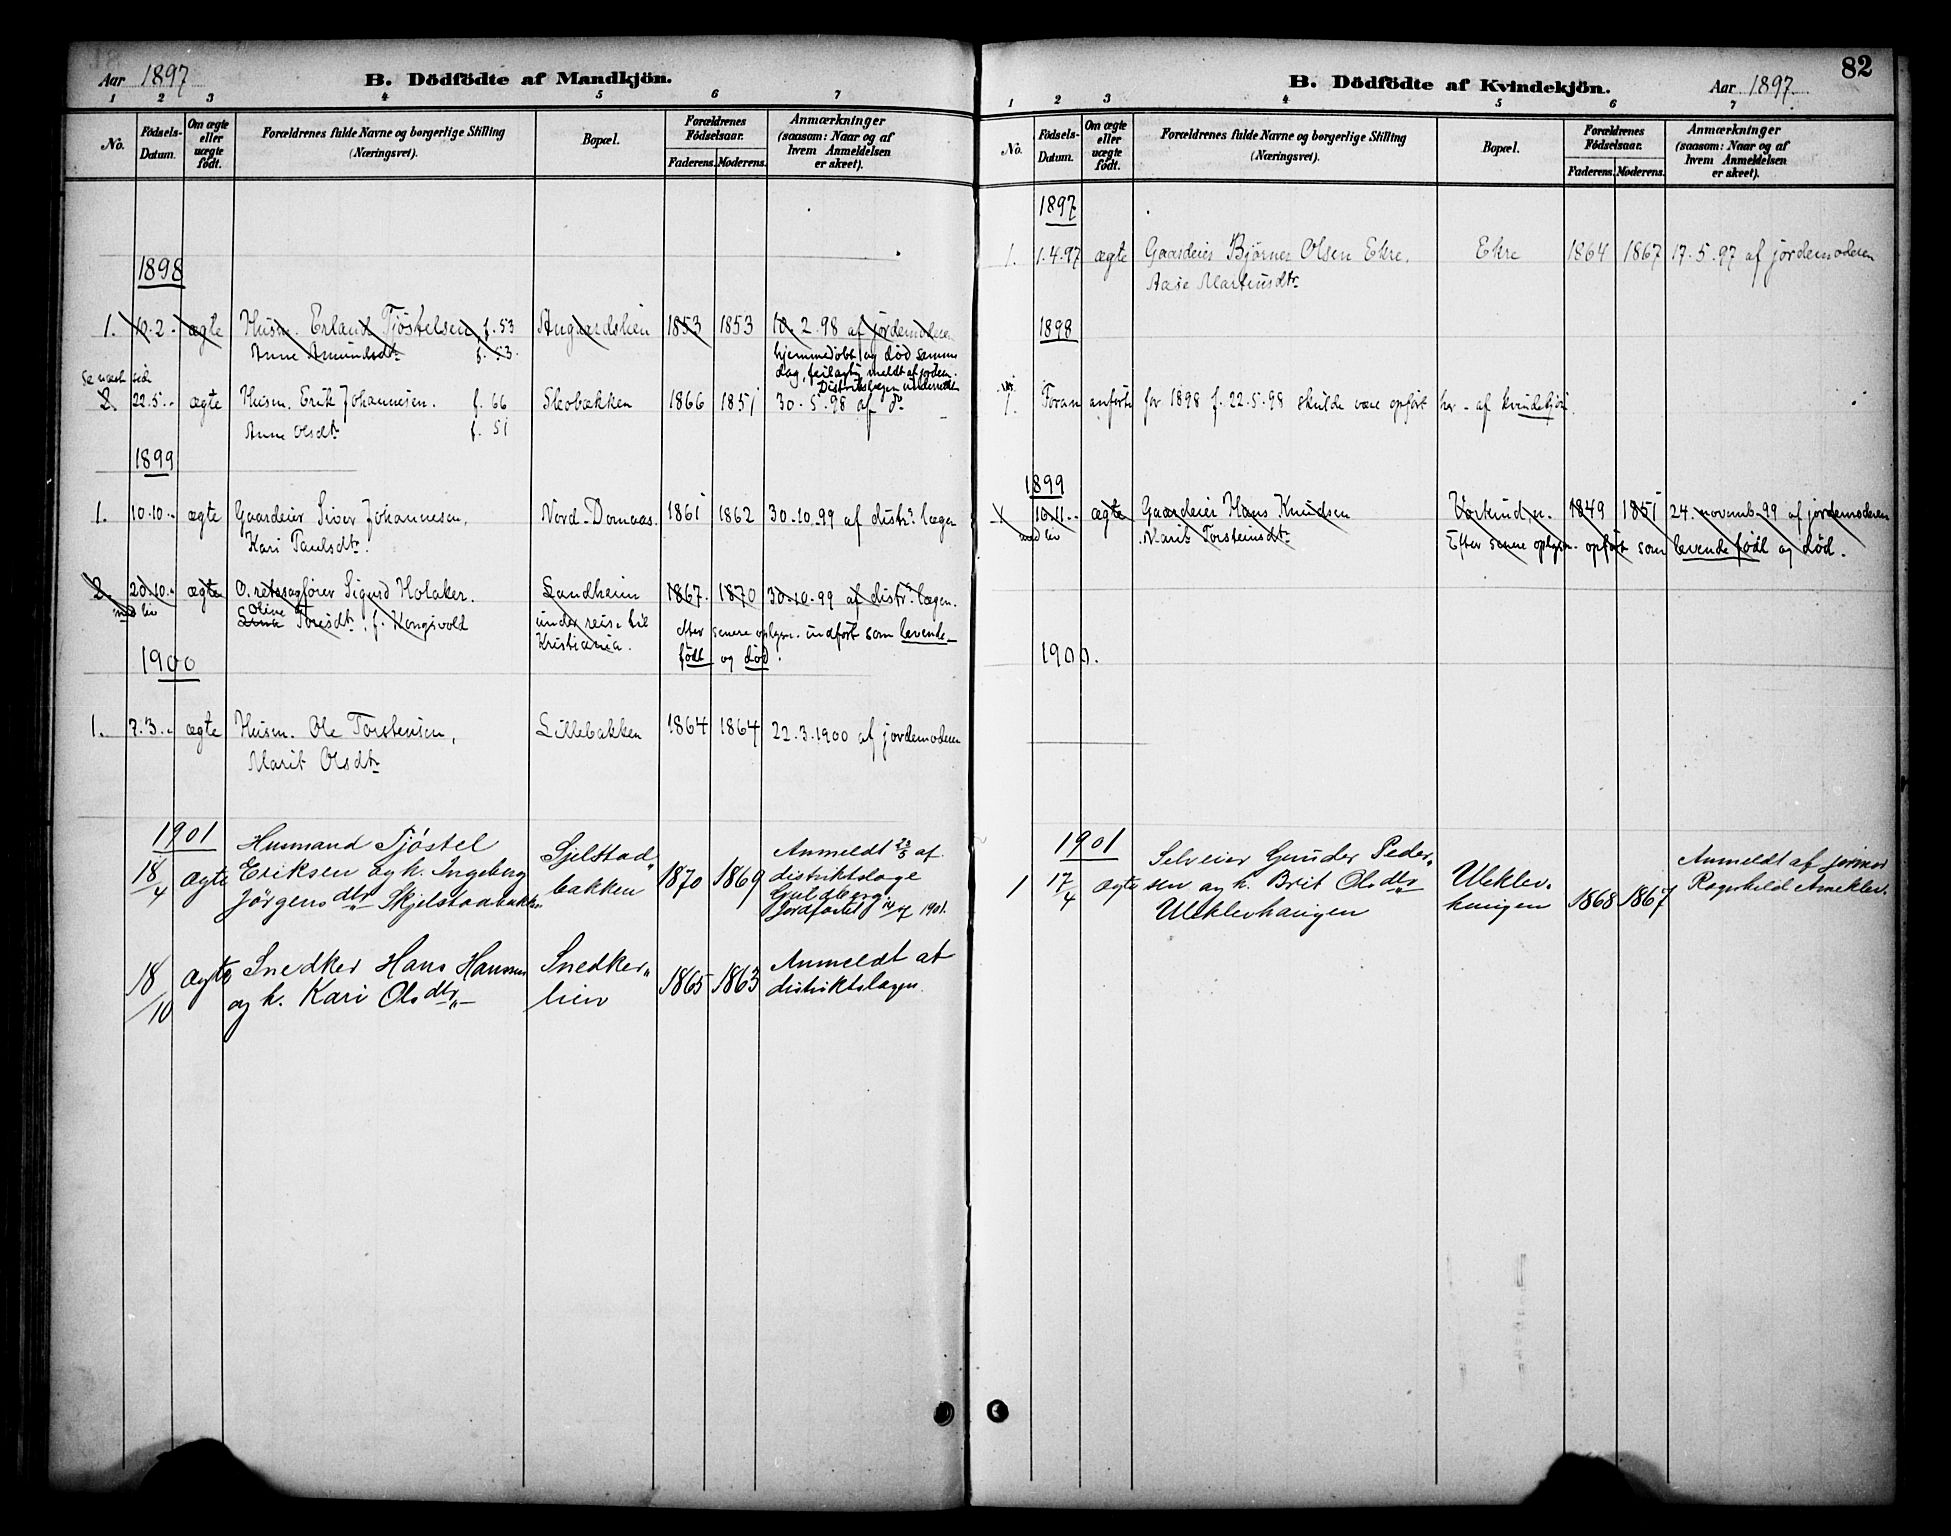 Aar 1897
B. Dödfödte af Mandkjön.
1 2 3 4 5 6 7
Nò.
Födsels-Datum.
Om ægte eller uægte födt.
Forældrenes fulde Navne og borgerlige Stilling (Næringsvei).
Bopæl.
Forældrenes Födselsaar.
Faderens. Moderens.
Anmærkninger (saasom: Naar og af hvem Anmeldelsen er skeet).
1898
1. 10.2.- ægte Husm. Erland Tjøstelsen, f. 53 1853 1853 10.2.98 af jordemoderen
Anne Amundsdtr f. 53. hjemmedøbt og død samme
dag, feilagtig meldt af jordem.
Se næste side
2. 22.5.- ægte Husm. Erik Johannesen. f. 66 Skobækken 1866 1851 30.5.98 af do
Anne Olsdtr f. 51
1899
1. 10.10.- ægte Gaardeier Siver Johannesen, Nord-Domaas. 1861 1862 30.10.99 af distr.lægen
Kari Paulsdtr.
2. 20.10.- ægte O.retssagfører Sigurd Holaker. Landheim 1867. 1870 30.10.99 af distr.lægen.
med liv Oline Toresdtr. f. Kongsvold under reise til
Kristiania. efter senere oplysn. indført som levende-
født og død.
1900
1. 7.3.- ægte Husm. Ole Torstensen, Lillebakken 1864 1864 22.3.1900 af jordemoderen
Marit Olsdtr
1901
18/4 ægte Husmand Tjøstel
Eriksen og h. Ingeborg
Jörgensdtr Skjelstadbakken
Sjelstad-
bakken
1870 1869
Anmeldt af
distriktslæge
Guldberg
Jordfæstet 1901.
18/10 ægte Snedker Hans Hansen
og h. Kari Olsdtr
Snedker-
lien
1865 1863
Anmeldt af
distriktslægen.
82
B. Dödfödte af Kvindekjön.
Aar 1897.
1 2 3 4 5 6 7
Nò.
Födsels-Datum.
Om ægte eller uægte födt.
Forældrenes fulde Navne og borgerlige Stilling (Næringsvei).
Bopæl.
Forældrenes Födselsaar.
Faderens. Moderens.
Anmærkninger (saasom: Naar og af hvem Anmeldelsen er skeet).
1897
1. 1.4.97 ægte Gaardeier Bjørner Olsen Ekre, Ekre 1864 1867 17.5.97 af jordemoderen
Aase Martinusdtr
1898
1. Foran anførte for 1898 f. 22.5.98 skulde være opført her - af kvindekjøn.
1899
1 10.11.- ægte Gaardeier Hans Knudsen 1849 1851 24. novemb. 99 af jordemoderen
med liv Marit Torsteinsdtr Efter senere oplysn. opført som levende født og død.
1900.
1901
1 17/4 ægte Selveier Gunder Peder-
sen og h. Brit Olsdtr
Uleklevhaugen
Uleklev-
haugen
1868 1867
Anmeldt af jormor
Ragnhild